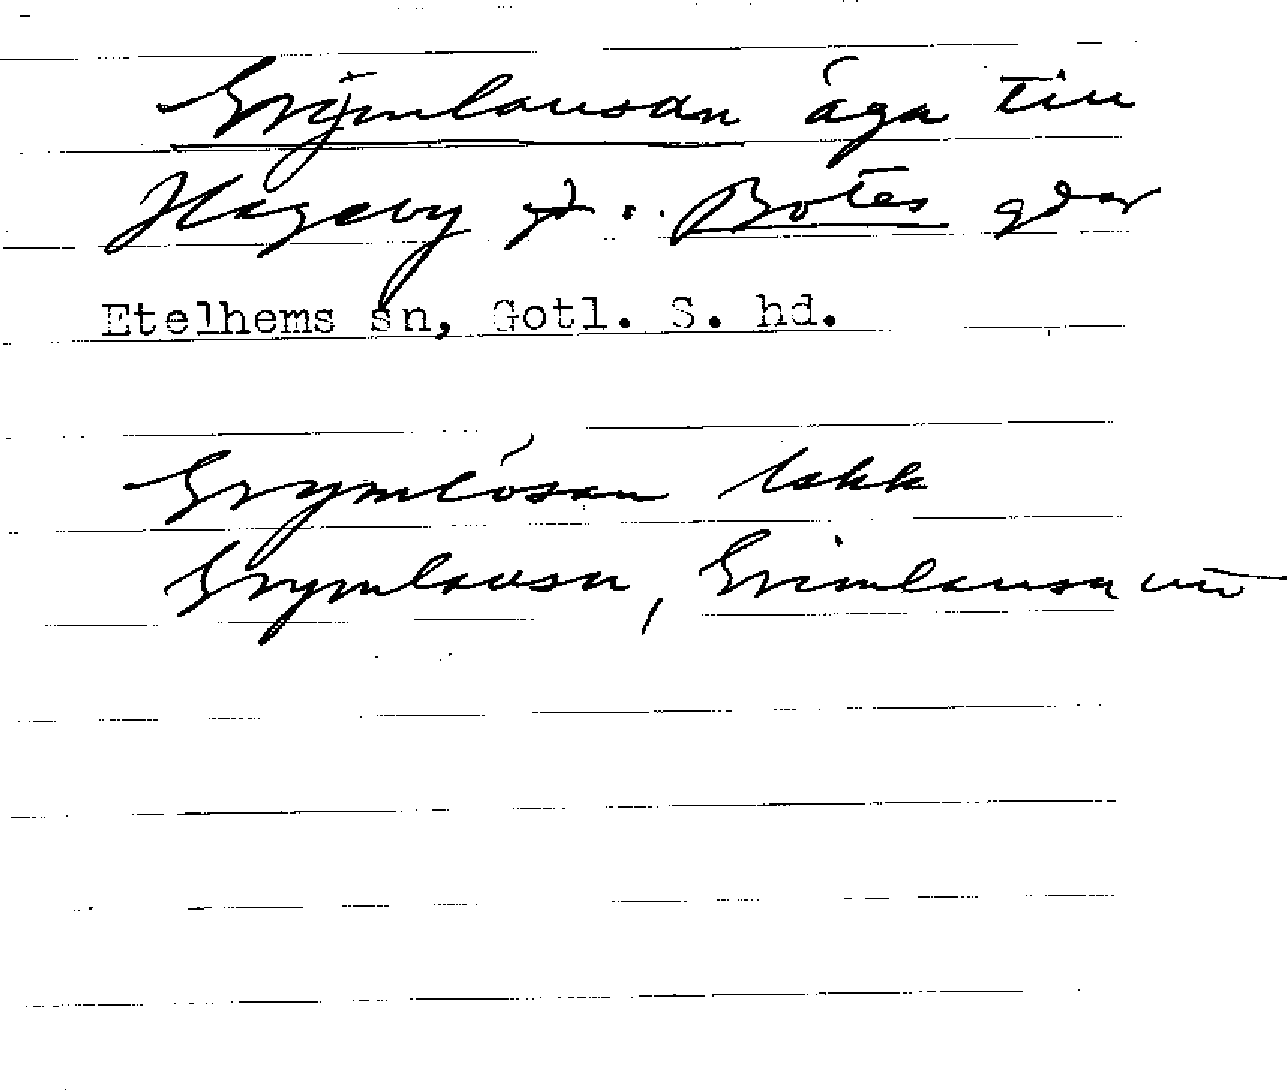 Grymlausan äga till
Hageby o. Botes gdar
Etelhems sn, Gotl. S. hd.
Grymlósan
Grymlausu, Grimlausu